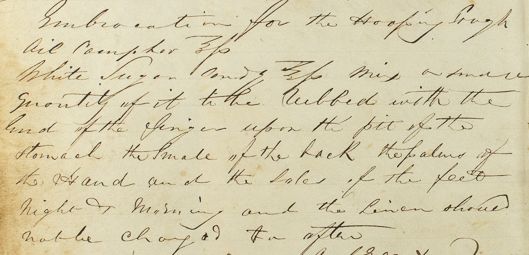 Embrocation for the Hooping Cough
Oil Camphor ℥ß
White Sugar ℥ß Mix a small
Quantity of it to be Rubbed with the
End of the finger upon the pit of the
Stomach the Small of the back the palms of
the Hand and the Soles of the feet
Night & Morning and the Linen should
not be changed after